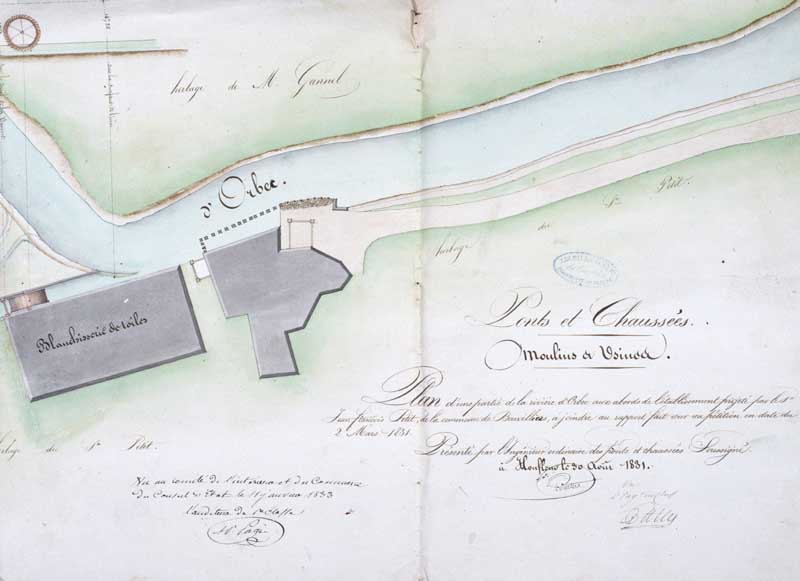 herbage de M. Gannel
d'Orbec.
herbage du Sr. Petit.
Blanchisserie de toiles
Ponts et Chaussées.
Moulins et Usines.
Plan d'une partie de la rivière d'Orbec aux abords de l'établissement projeté par le Sr.
Jean francois Petit, de la commune de Beuvillers, à joindre au rapport fait sur sa pétition en date du
2 Mars 1831.
Présenté par l'Ingénieur ordinaire des ponts et chaussées Soussigné.
à Honfleur le 30 Août 1831.
herbage du Sr. Petit.
Vu au comité de l'intérieur et du Commerce
du Conseil d'Etat le 18 janvier 1833
l'auditeur de 1re classe